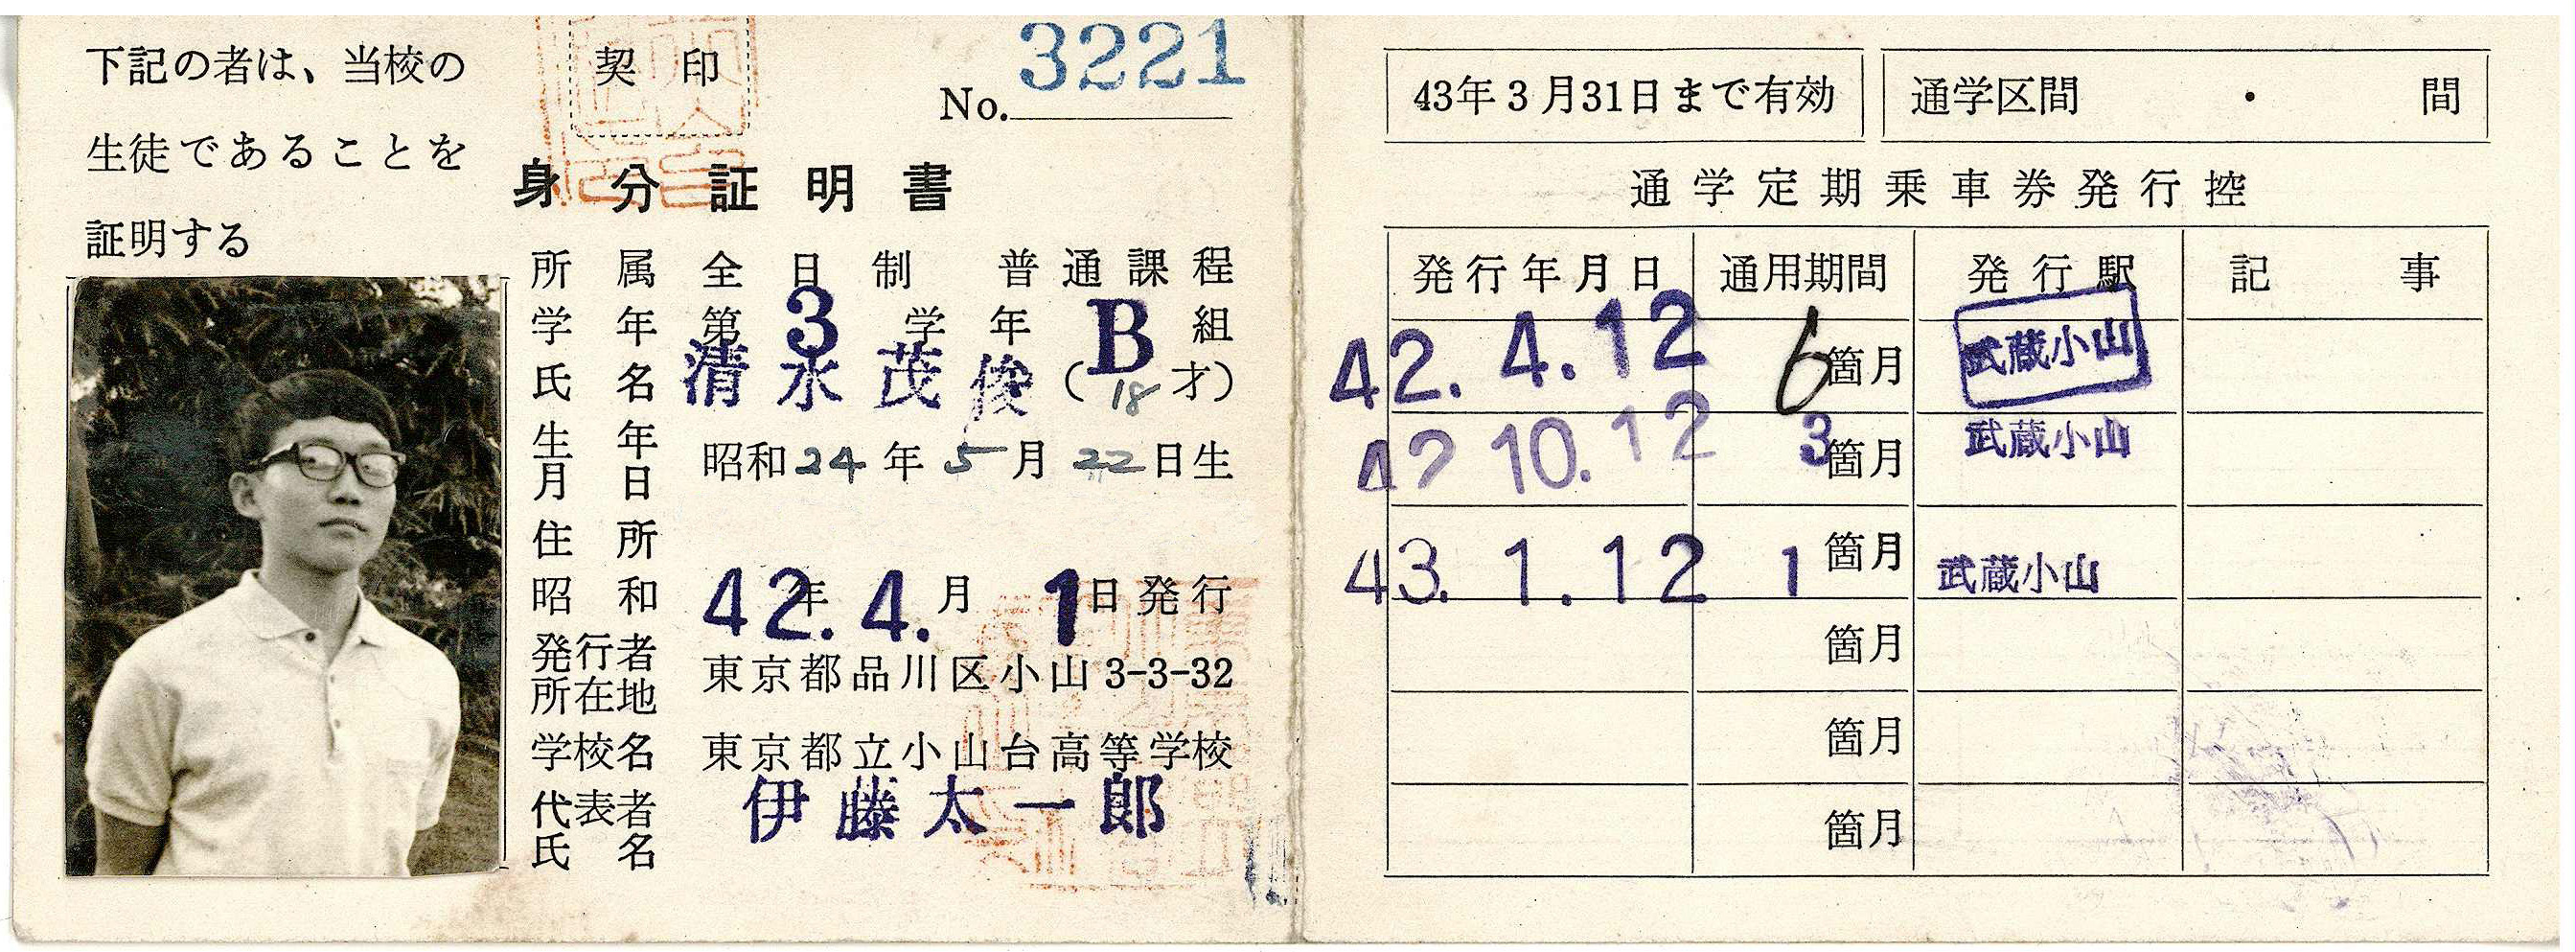 下記の者は、当校の
生徒であることを
証明する
契印
No. 3221
身分証明書
所属 全日制 普通課程
学年 第3学年 B組
氏名 清水茂俊 (18才)
生年月日 昭和24年5月22日生
住所
昭和42年.4.月1日発行
発行者所在地 東京都品川区小山3-3-32
学校名 東京都立小山台高等学校
代表者氏名 伊藤太一郎
43年3月31日まで有効
通学区間 ・ 間
通学定期乗車券発行控
発行年月日 通用期間 発行駅 記事
42.4.12 6箇月 武蔵小山
42 10.12 3箇月 武蔵小山
43.1.12 1箇月 武蔵小山
箇月
箇月
箇月